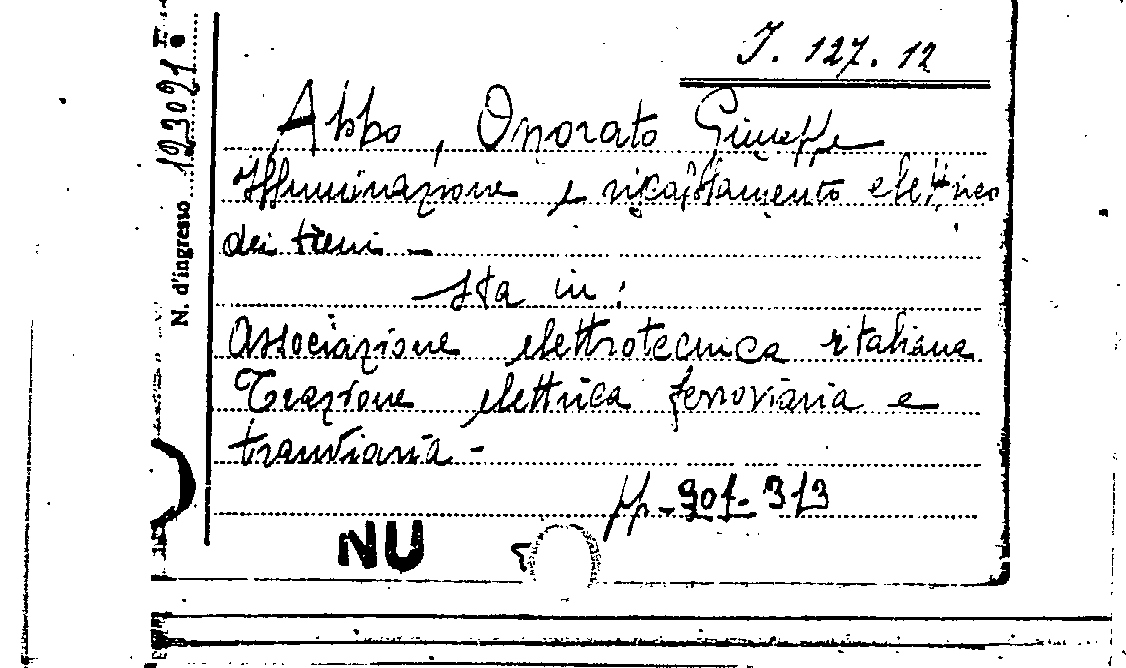 I. 127. 12
Abbo, Onorato Giuseppe
Illuminazione e riscaldamento elettrico
dei treni -
sta in:
Associazione elettrotecnica italiana
Trazione elettrica ferroviaria e
tranviaria -
pp. 901-913
NU
N. d'ingresso 123091